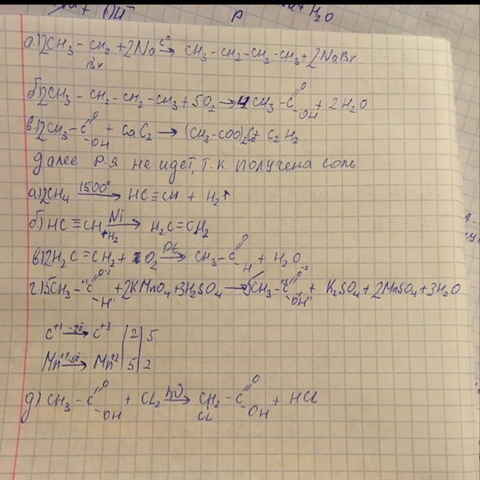 а)2CH₃ – CH₂ + 2Na →(t°) CH₃ – CH₂ – CH₂ – CH₃ + 2NaBr
Br
б)2CH₃ – CH₂ – CH₂ – CH₃ + 5O₂ → 4CH₃ – C=O –OH + 2H₂O
в)2CH₃ – C=O –OH + CaC₂ → (CH₃ – COO)₂Ca + C₂H₂
Далее р-я не идет, т.к получена соль
а)2CH₄ →(1500°) HC≡CH + H₂↑
б) HC≡CH →(Ni, +H₂) H₂C=CH₂
в)2H₂C=CH₂ + O₂ →(Pt) CH₃ – C=O –H + H₂O
г)5CH₃ – C=O –H + 2KMnO₄ + 3H₂SO₄ → 5CH₃ – C=O –OH + K₂SO₄ + 2MnSO₄ + 3H₂O
C⁺¹ →(-2ē) C⁺³ | 2 | 5
Mn⁺⁷ →(+5ē) Mn⁺² | 5 | 2
д) CH₃ – C=O –OH + Cl₂ →(hν) CH₂ – C=O –OH + HCl
Cl